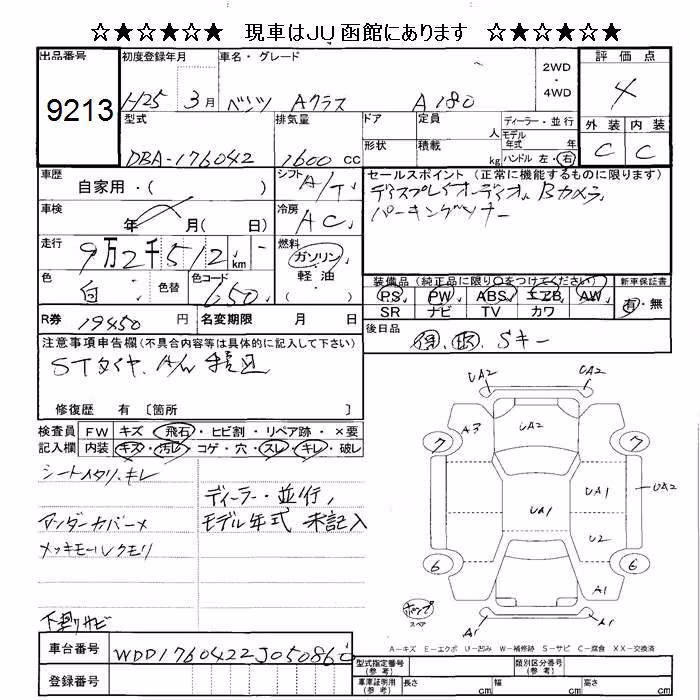 ☆★☆★☆ 現車はJU函館にあります ☆★☆★☆
出品番号
9213
初度登録年月
H25 3月
車名・グレード
ベンツ Aクラス A180
2WD
・
4WD
評価点
4
外装 内装
C C
型式
DBA-176042
排気量
1600 cc
ドア 定員 人
形状 積載 kg
ディーラー・並行
モデル年式 年式
ハンドル 左・右
車歴
自家用・( )
シフト
A/T
セールスポイント(正常に機能するものに限ります)
ディスプレイオーディオ、Bカメラ、
パーキングソナー
車検
年 月( 日)
冷房
AC
走行
9万2千512km
燃料
ガソリン
軽油
( )
色
白
色替
色コード
650
装備品(純正品に限り○をつけてください)
PS PW ABS エアB AW
SR ナビ TV カワ
新車保証書
有・無
R券
19450円
名変期限 月 日
後日品
Sキー
注意事項申告欄(不具合内容等は具体的に記入して下さい)
STタイヤ、A/W 積込
修復歴 有〔箇所 〕
検査員記入欄
FW キズ・飛石・ヒビ割・リペア跡・×要
内装 キズ・汚レ・コゲ・穴・スレ・キレ・破レ
シートスタリ、キレ
アンダーカバーメ
メッキモールクモリ
下廻リサビ
ディーラー・並行、
モデル年式 未記入
UA2 UA2
A3 UA2
7 7
UA1 UA1 UA2
U2
6 6
A1
ポンプ
スペア
A1 A1
A-キズ E-エクボ U-凹み W-補修跡 S-サビ C-腐食 XX-交換済
車台番号
WDD1760422J050860
登録番号
型式指定番号(参考) 類別区分番号(参考)
車庫証明用(参考) 長さ cm 幅 cm 高さ cm